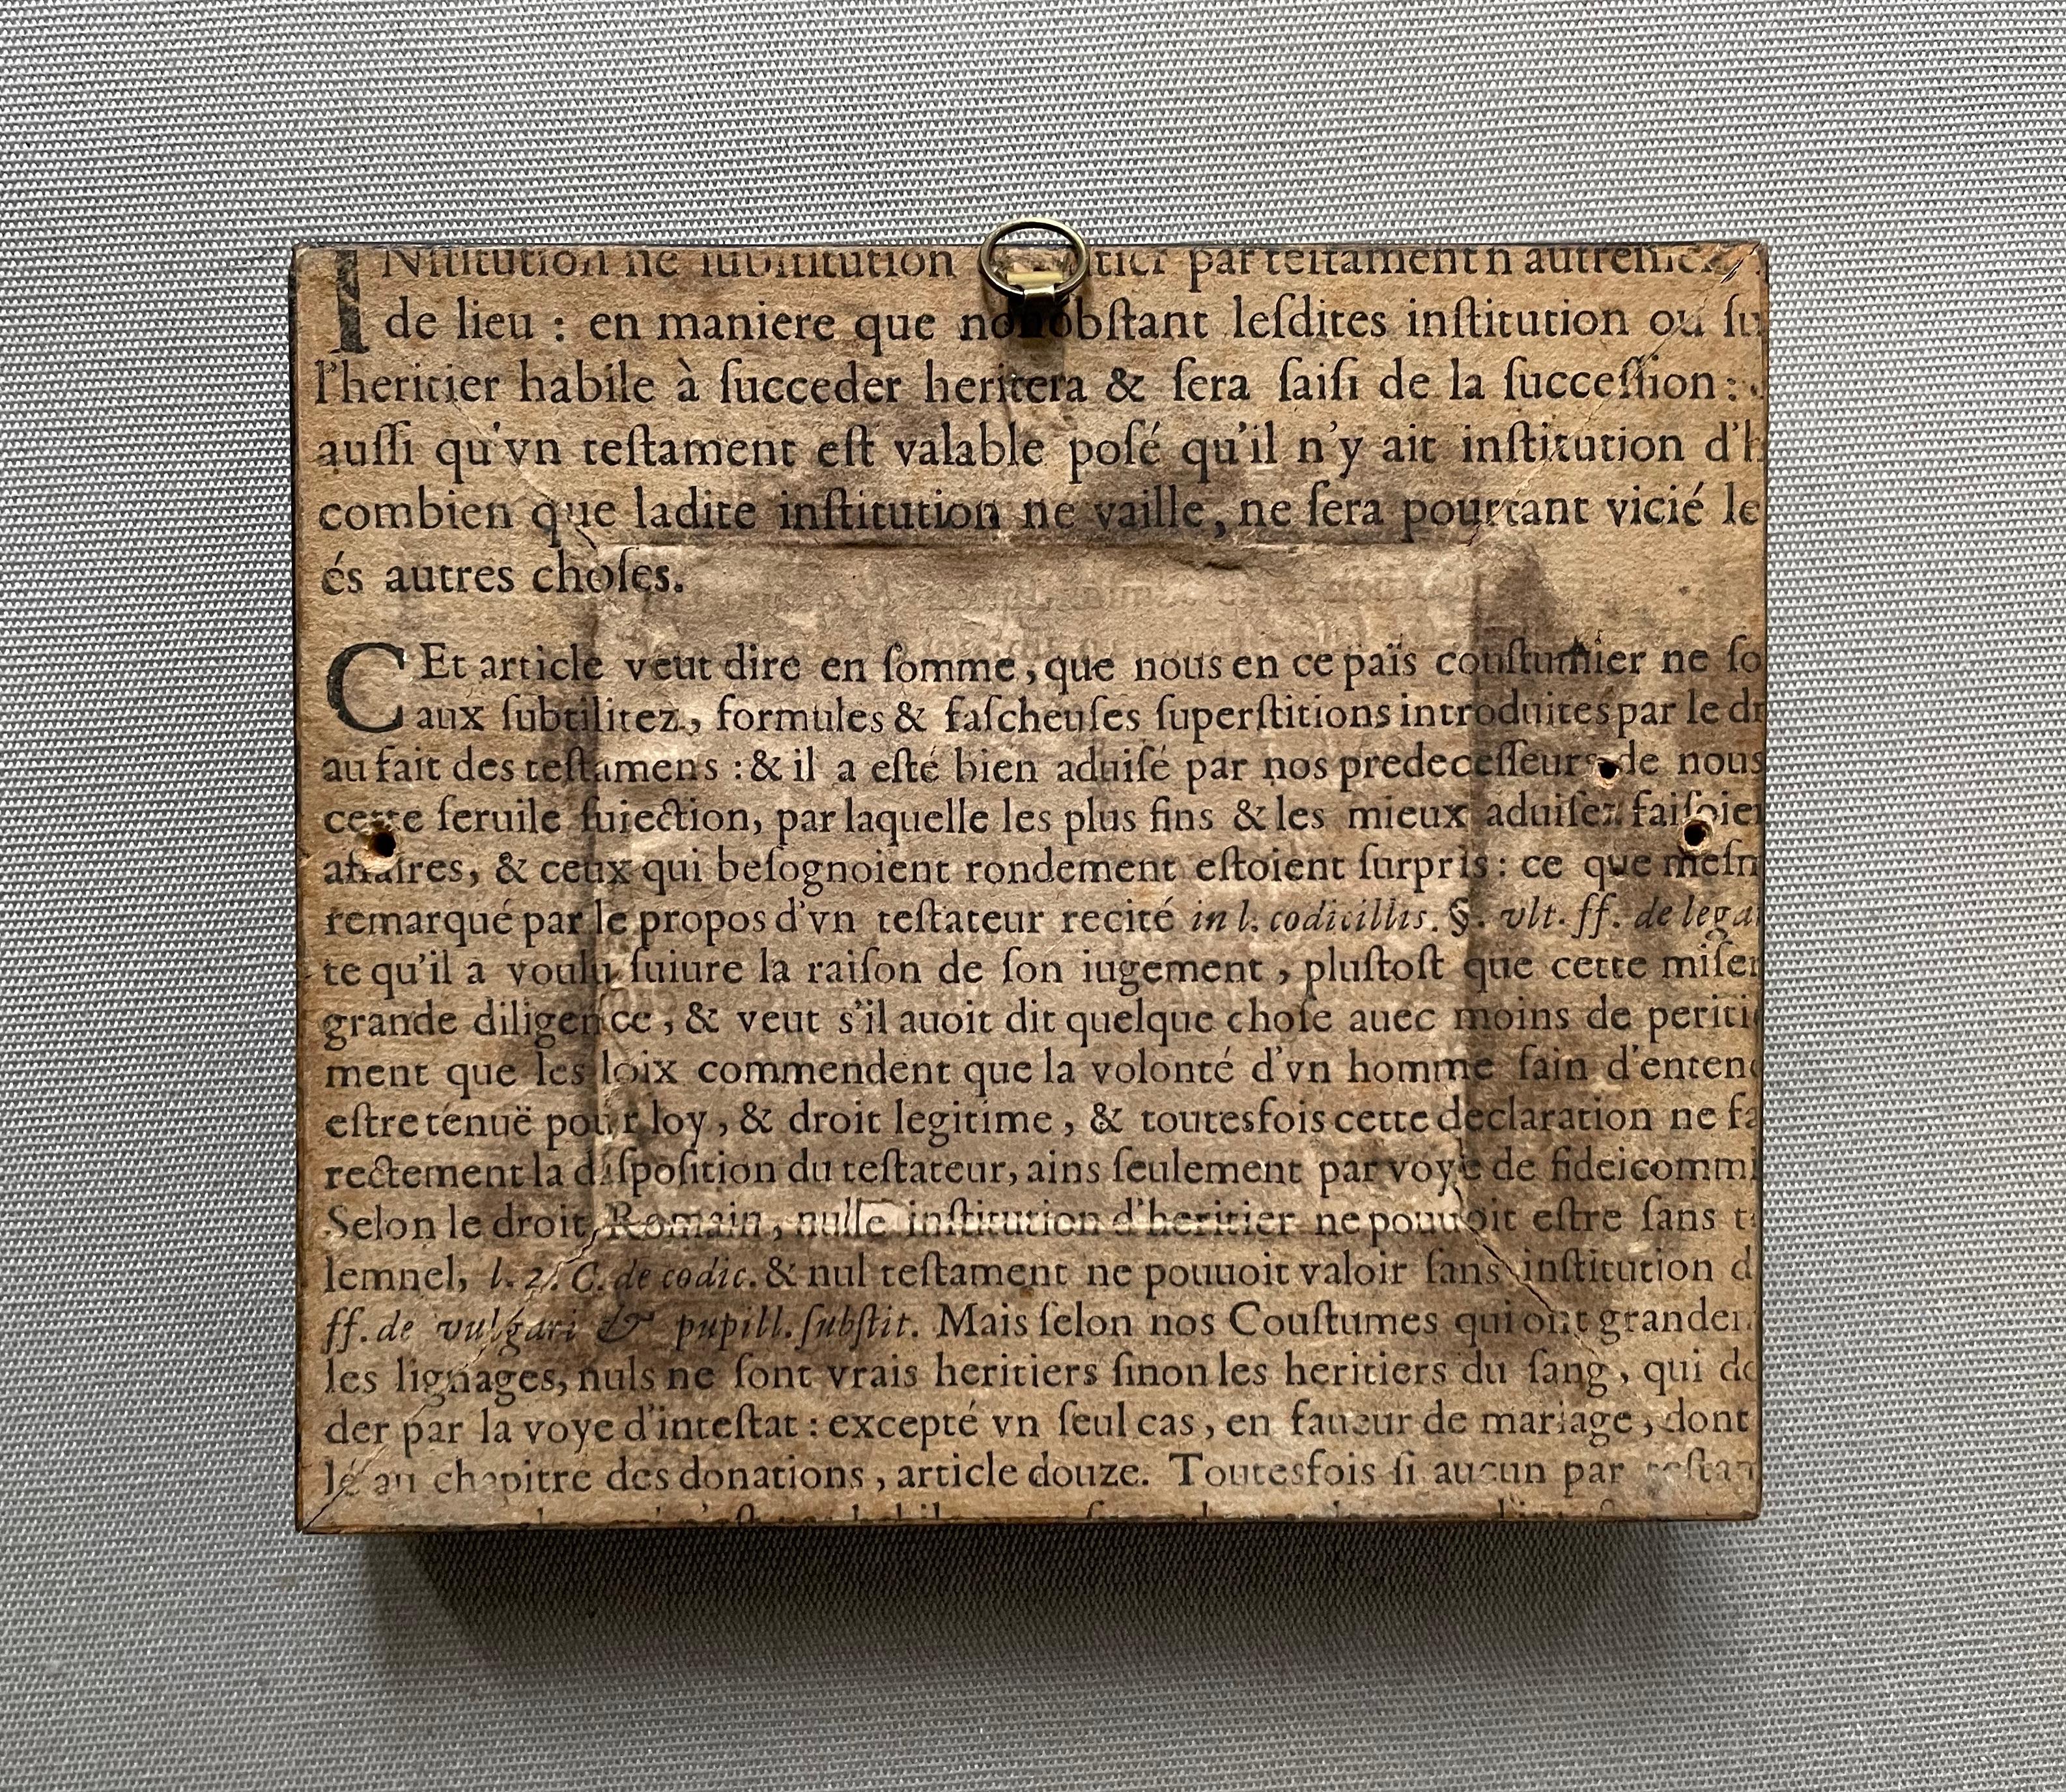 INſtitution ne ſubſtitution par teſtament n'
de lieu : en maniere que nonobſtant leſdites inſtitution ou ſu
l'heritier habile à ſucceder heritera & ſera ſaiſi de la ſucceſſion :
auſſi qu'vn teſtament eſt valable poſé qu'il n'y ait inſtitution d'h
combien que ladite inſtitution ne vaille, ne ſera pourtant vicié le
és autres choſes.
CEt article veut dire en ſomme, que nous en ce païs couſtumier ne ſo
aux ſubtilitez, formules & faſcheuſes ſuperſtitions introduites par le dr
au fait des teſtamens : & il a eſté bien aduiſé par nos predeceſſeurs de nous
cette ſeruile ſuiection, par laquelle les plus fins & les mieux aduiſez faiſoien
affaires, & ceux qui beſognoient rondement eſtoient ſurpris : ce que meſm
remarqué par le propos d'vn teſtateur recité in l. codicillis. §. vlt. ff. de lega
te qu'il a voulu ſuiure la raiſon de ſon iugement, pluſtoſt que cette miſer
grande diligence, & veut s'il auoit dit quelque choſe auec moins de periti
ment que les loix commendent que la volonté d'vn homme ſain d'enten
eſtre tenuë pour loy, & droit legitime, & toutesfois cette declaration ne fa
rectement la diſpoſition du teſtateur, ains ſeulement par voye de fideicomm
Selon le droit Romain, nulle inſtitution d'heritier ne pouuoit eſtre ſans t
lemnel, l. 2. C. de codic. & nul teſtament ne pouuoit valoir ſans inſtitution d
ff. de vulgari & pupill. ſubſtit. Mais ſelon nos Couſtumes qui ont grande
les lignages, nuls ne ſont vrais heritiers ſinon les heritiers du ſang, qui do
der par la voye d'inteſtat : excepté vn ſeul cas, en faueur de mariage, dont
lé au chapitre des donations, article douze. Toutesfois ſi aucun par teſtam